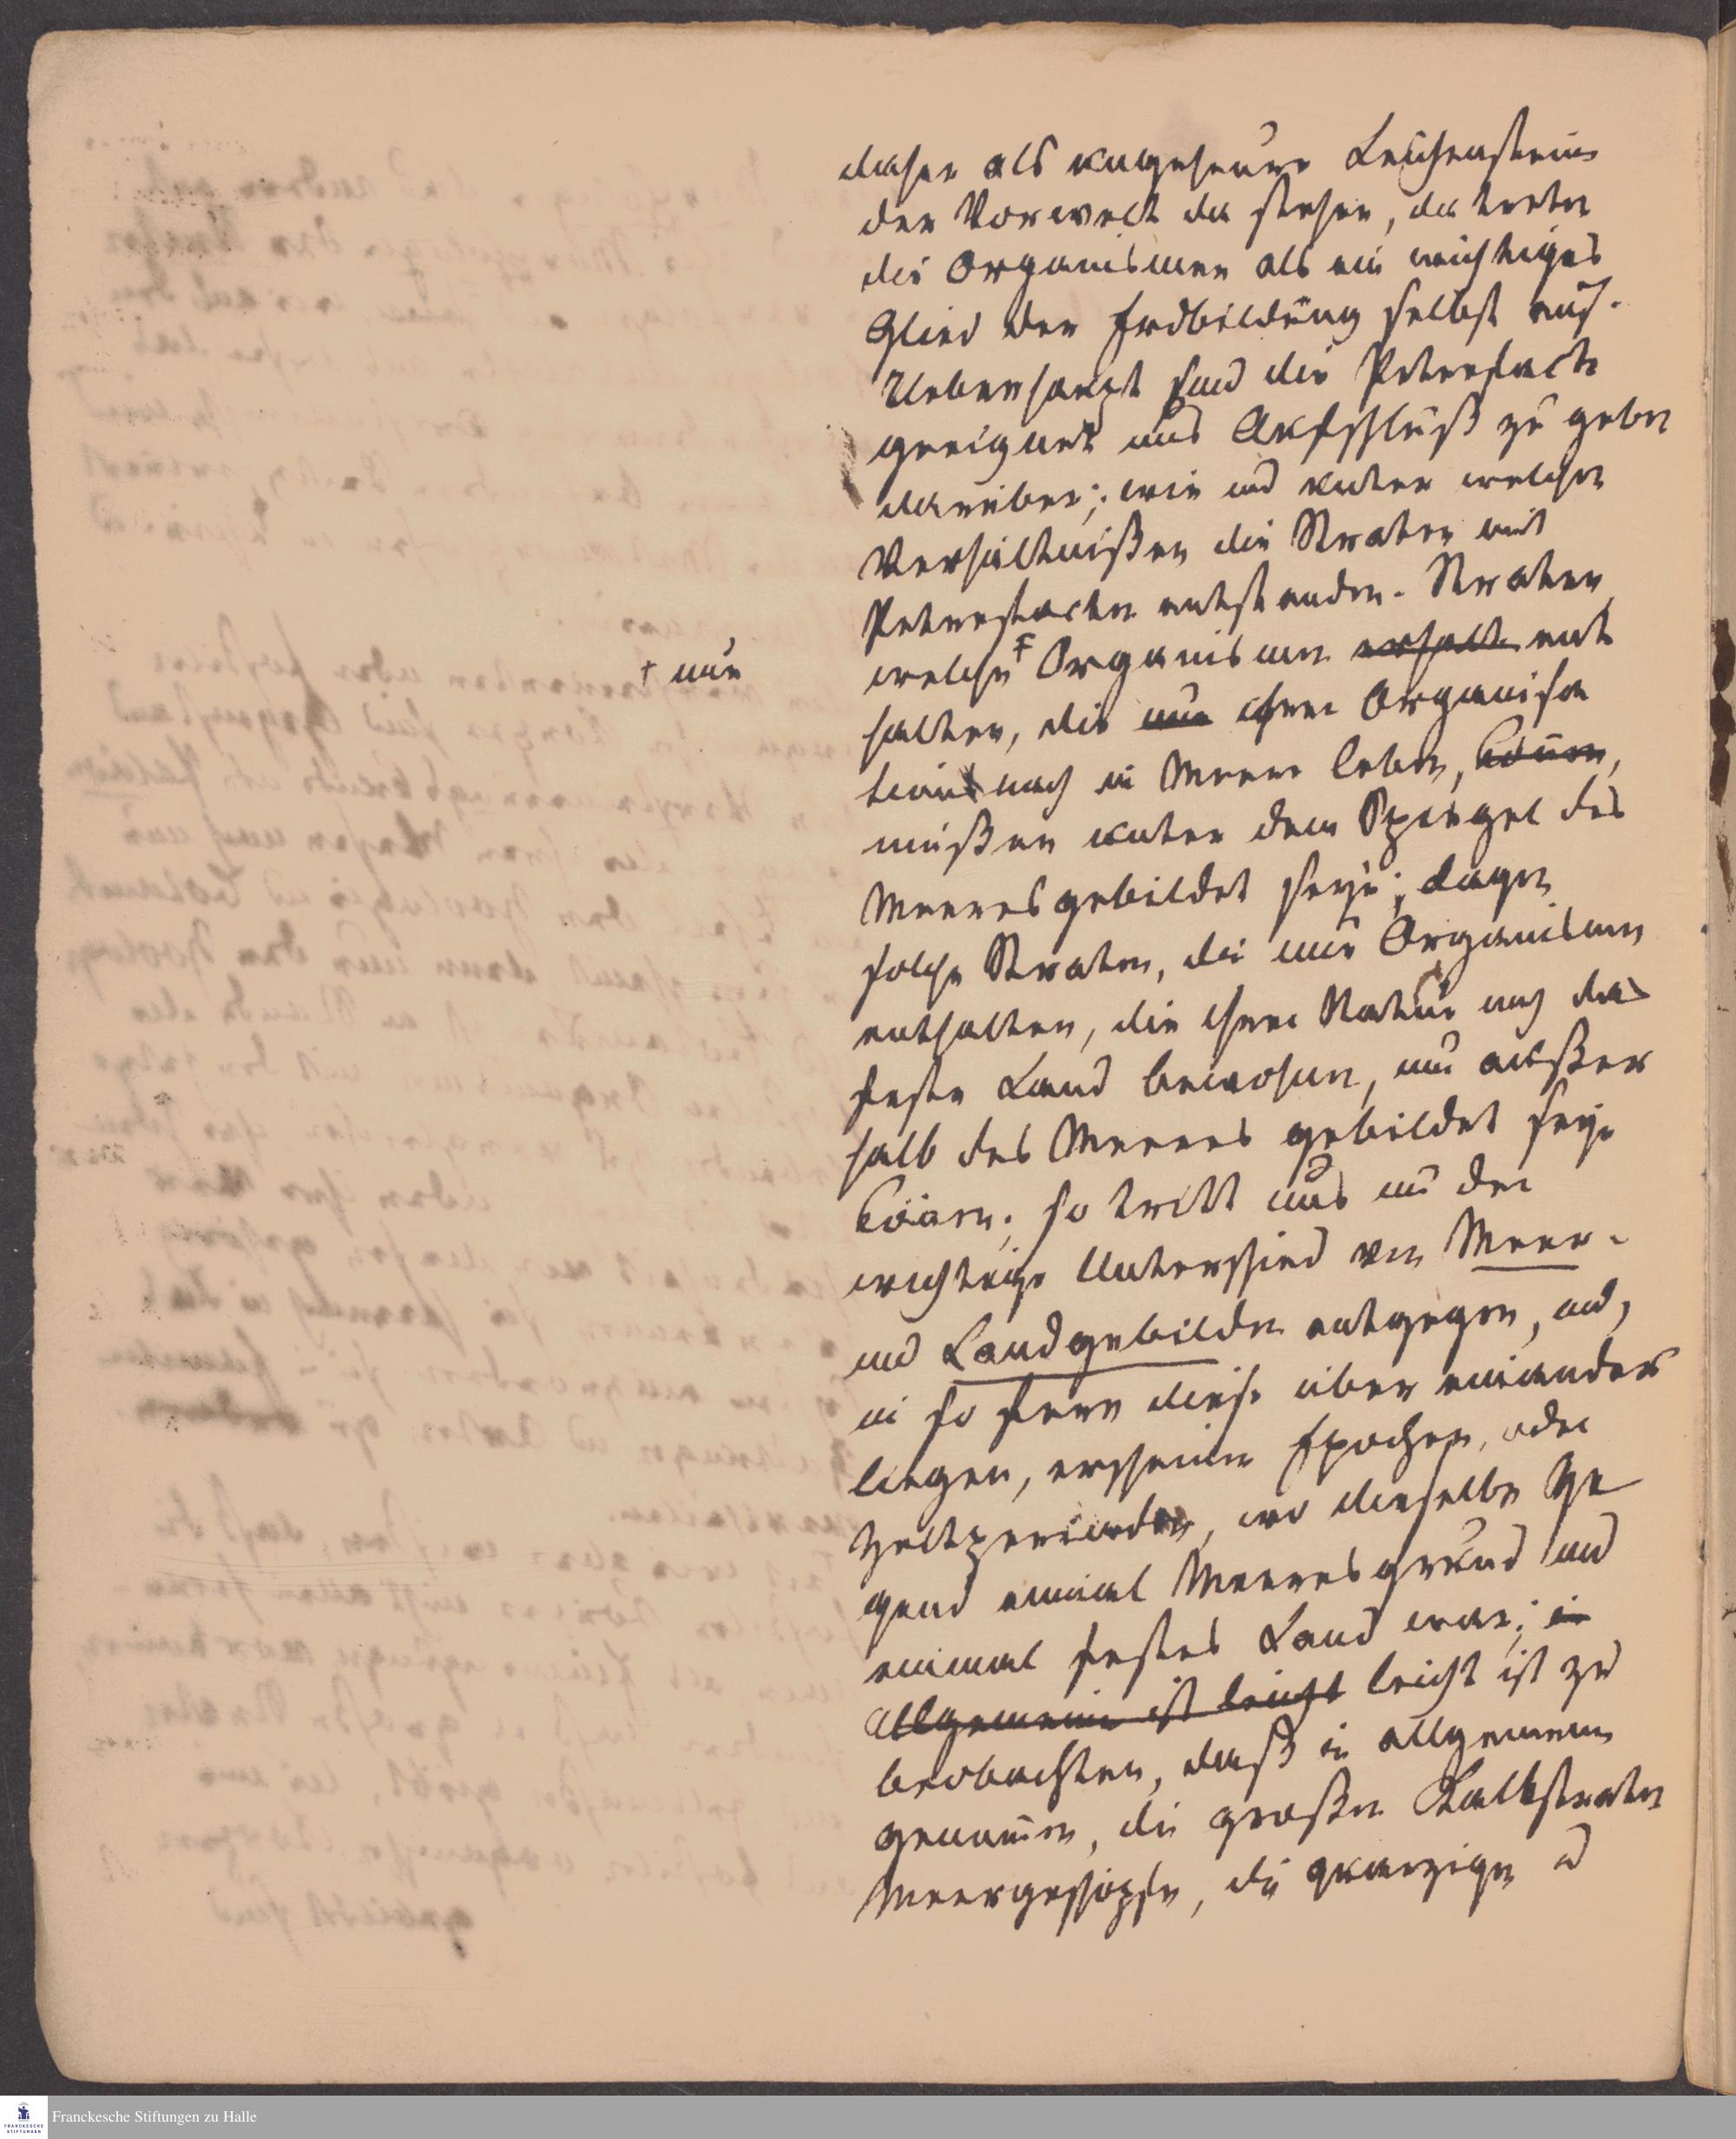 daher als ungeheure Leichensteine
der Vorwelt da stehen, da treten
die Organismen als ein wichtiges
Glied der Erdbildung selbst auf.
Ueberhaupt sind die Petrefacte
geeignet uns Aufschluß zu geben
darüber; wie und unter welchen
Verhältnißen die Straten mit
Petrefacten entstanden. Straten,
† nur
welche † Organismen erhalten ent
halten, die nur ihrer Organisa
tion nach im Meere leben, können,
müßen unter dem Spiegel des
Meeres gebildet seyn; dagegen
solche Straten, die nur Organismen
enthalten, die ihrer Natur nach das
feste Land bewohnen, nur außer
halb des Meeres gebildet seyn
können; so tritt uns nun der
wichtige Unterschied von Meer-
und Landgebilden entgegen, und,
in so fern diese über einander
liegen, erscheinen Epochen, oder
Zeitperioden, wo dieselbe Ge
gend einmal Meeresgrund und
einmal festes Land war; im
allgemeinen ist leicht leicht ist zu
beobachten, daß im allgemeinen
genommen, die großen Kalkstraten
Meergeschöpfe, die quarzigen u
Franckesche Stiftungen zu Halle